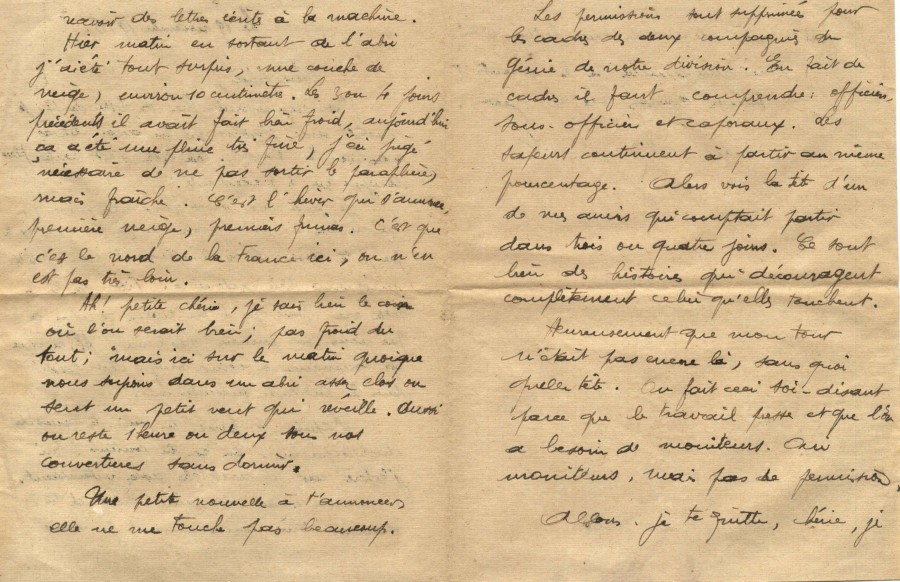 recevoir des lettres écrite à la machine.
Hier matin en sortant de l'abri
j'ai été tout surpris, une couche de
neige, environ 10 centimètre. Les 3 ou 4 jours
précédents il avait fait bien froid, aujourd'hui
ça a été une pluie très fine, j'ai jugé
nécessaire de ne pas sortir le parapluie,
mais fraîche. C'est l'hiver qui s'annonce,
première neige, premiers frimas. C'est que
c'est le nord de la France ici, on n'en
est pas très loin.
Ah! petite chérie, je sais bien le coin
où l'on serait bien; pas froid du
tout; mais ici sur le matin quoique
nous soyions dans un abri assez clos on
sent un petit vent qui réveille. Aussi
on reste 1 heure ou deux sous nos
couvertures sans dormir.
Une petite nouvelle à t'annoncer,
elle ne me touche pas beaucoup.
Les permissions sont supprimées pour
les cadres des deux compagnies du
Génie de notre division. En fait de
cadres il faut comprendre: officiers,
sous-officiers et caporaux. Les
sapeurs continuent à partir au même
pourcentage. Alors vois la tête d'un
de mes amis qui comptait partir
dans trois ou quatre jours. Ce sont
bien des histoires qui découragent
complètement celui qu'elles touchent.
Heureusement que mon tour
n'était pas encore là, sans quoi
quelle tête. On fait ceci soi-disant
parce que le travail presse et que l'on
a besoin de moniteurs. Oui
moniteurs, mais pas de permission.
Allons. je te quitte, chérie, je